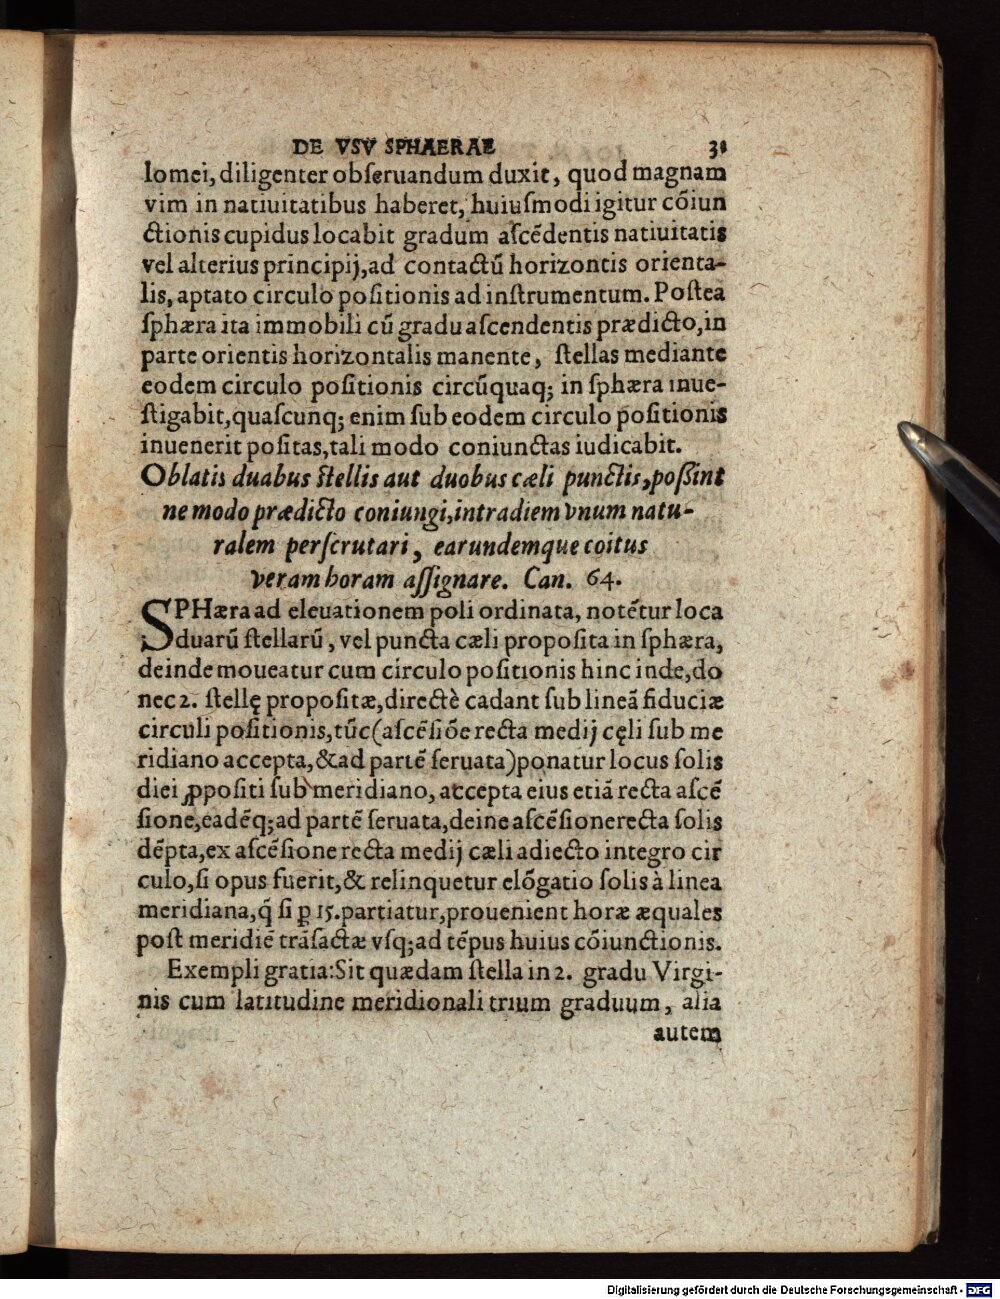 DE VSV SPHAERAE 31
lomei, diligenter obſeruandum duxit, quod magnam
vim in natiuitatibus haberet, huiuſmodi igitur cōiun
ctionis cupidus locabit gradum aſcēdentis natiuitatis
vel alterius principij, ad contactū horizontis orienta-
lis, aptato circulo poſitionis ad inſtrumentum. Poſtea
ſphæra ita immobili cū gradu aſcendentis prædicto, in
parte orientis horizontalis manente, ſtellas mediante
eodem circulo poſitionis circūquaq; in ſphæra inue-
ſtigabit, quaſcunq; enim ſub eodem circulo poſitionis
inuenerit poſitas, tali modo coniunctas iudicabit.
Oblatis duabus ſtellis aut duobus cæli punctis, poßint
ne modo prædicto coniungi, intra diem vnum natu-
ralem perſcrutari, earundemque coitus
veram horam aſſignare. Can. 64.
SPHæra ad eleuationem poli ordinata, notētur loca
duarū ſtellarū, vel puncta cæli propoſita in ſphæra,
deinde moueatur cum circulo poſitionis hinc inde, do
nec 2. ſtellę propoſitæ, directè cadant ſub lineā fiduciæ
circuli poſitionis, tūc (aſcēſiōe recta medij cęli ſub me
ridiano accepta, & ad partē ſeruata) ponatur locus ſolis
diei ꝓpoſiti ſub meridiano, accepta eius etiā recta aſcē
ſione, eadēq; ad partē ſeruata, deine aſcēſione recta ſolis
dēpta, ex aſcēſione recta medij cæli adiecto integro cir
culo, ſi opus fuerit, & relinquetur elōgatio ſolis à linea
meridiana, q̄ ſi ꝑ 15. partiatur, prouenient horæ æquales
poſt meridiē trāſactæ vſq; ad tēpus huius cōiunctionis.
Exempli gratia: Sit quædam ſtella in 2. gradu Virgi-
nis cum latitudine meridionali trium graduum, alia
autem
Digitalisierung gefördert durch die Deutsche Forschungsgemeinschaft - DFG